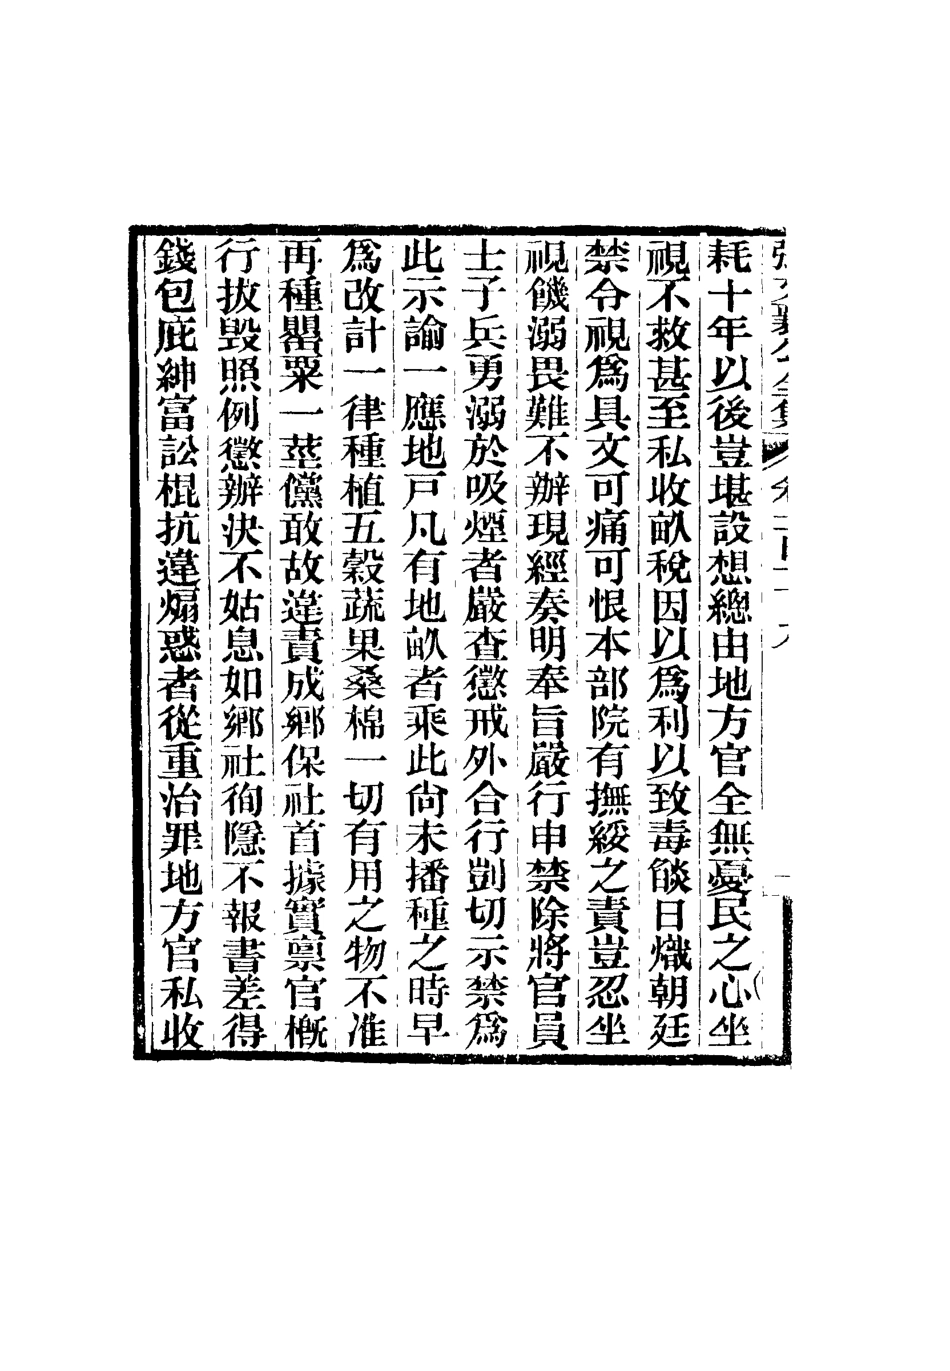 耗十年以後豈堪設想總由地方官全無憂民之心坐
視不救甚至私收畝稅因以爲利以致毒燄日熾朝廷
禁令視爲具文可痛可恨本部院有撫綏之責豈忍坐
視饑溺畏難不辦現經奏明奉旨嚴行申禁除將官員
士子兵勇溺於吸煙者嚴查懲戒外合行剴切示禁爲
此示諭一應地戸凡有地畝者乘此尙未播種之時早
爲改計一律種植五穀蔬果桑棉一切有用之物不准
再種罌粟一莖儻敢故違責成鄕保社首據實禀官槪
行拔毀照例懲辦決不姑息如鄕社徇隱不報書差得
錢包庇紳富訟棍抗違煽惑者從重治罪地方官私收